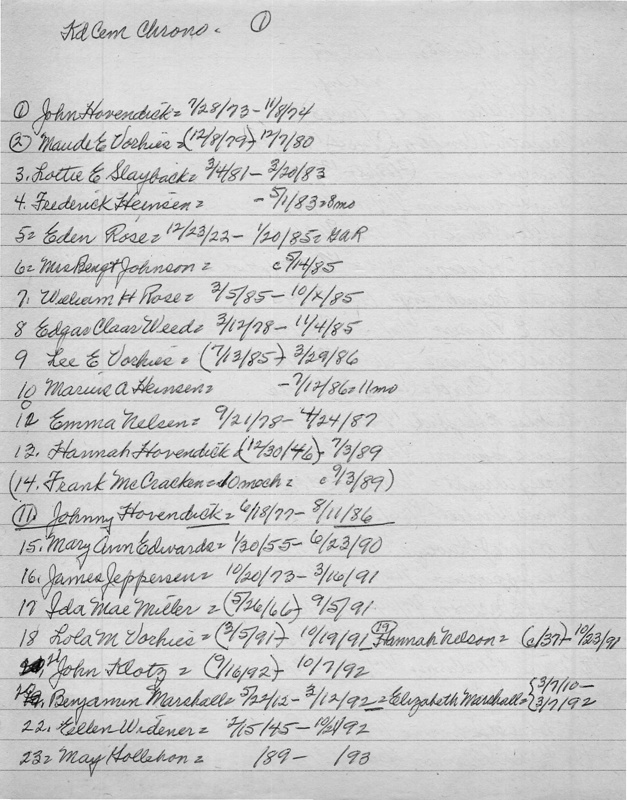 Kd Cem Chrono. ①
① John Hovendick = 7/28/73 - 11/8/74
② Maude E Vorhies = (12/8/79) - 12/7/80
3. Lottie E Slayback = 3/4/81 - 3/20/83
4. Frederick Heinsen = - 5/1/83 = 8mo
5 = Eden Rose = 12/23/22 - 1/20/85 = GAR
6 = Mrs Bengt Johnson = c 5/14/85
7. William H Rose = 3/5/85 - 10/x/85
8 Edgar Claar Weed = 3/12/78 - 11/4/85
9 Lee E Vorhies = (7/13/85) - 3/29/86
10 Marius A Heinsen = - 7/12/86 = 11mo
12 Emma Nelsen = 9/21/78 - 4/24/87
13. Hannah Hovendick = (12/30/46) - 7/3/89
(14. Frank McCracken = 10moch = c 9/3/89)
⑪ Johnny Hovendick = 6/18/77 - 8/11/86
15. Mary Ann Edwards = 1/30/55 - 6/23/90
16. James Jeppersen = 10/20/73 - 3/16/91
17 Ida Mae Miller = (5/26/66) 9/5/91
18 Lola M Vorhies = (3/5/91) - 10/19/91 ⑲ Hannah Nelson = (c/37) - 10/23/91
21 John Klotz = (9/16/92) - 10/7/92
Benjamin Marshall = 5/22/12 - 3/12/92 = Elizabeth Marshall = {3/7/10 - 3/7/92
22. Ellen Widener = 2/15/45 - 10/21/92
23 = May Hollehon = /89 - /93